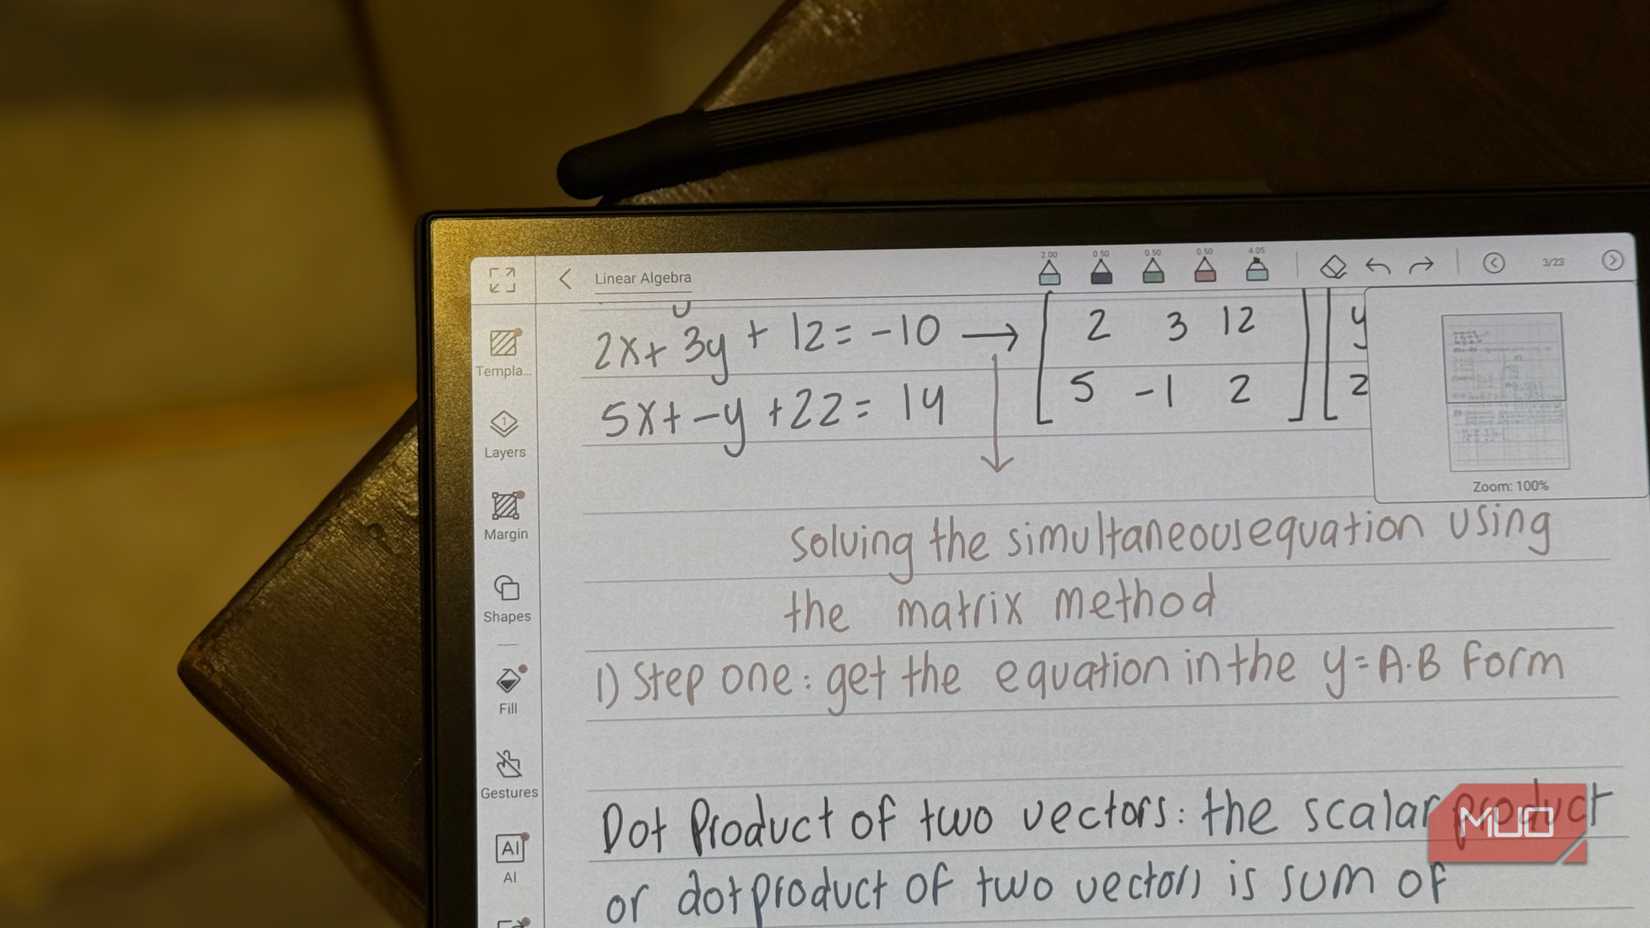 2.00 0.50 0.50 0.50 4.05
Linear Algebra
3/23
2x+ 3y + 12 = -10 → [ 2 3 12 ] [ y
5x+ -y +22 = 14 [ 5 -1 2 ] [ 2
Templa...
Layers
Zoom: 100%
Margin
solving the simultaneous equation using
the matrix method
Shapes
1) Step one: get the equation in the y=A·B form
Fill
Gestures
Dot Product of two vectors: the scalar product
MUO
AI
AI
or dot product of two vectors is sum of